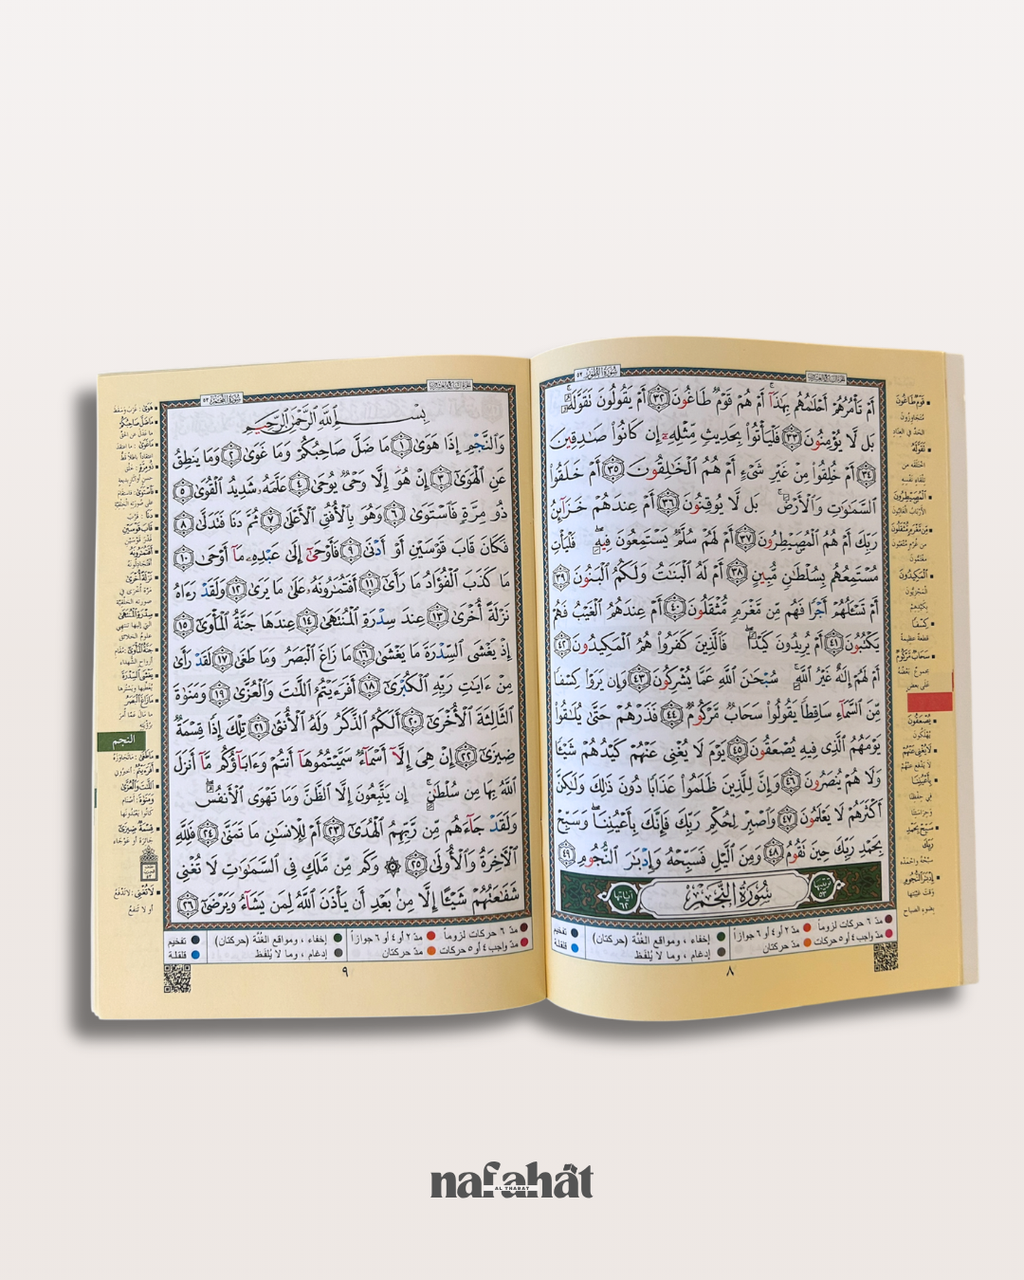 أَمْ تَأْمُرُهُمْ أَحْلَٰمُهُم بِهَٰذَآ ۚ أَمْ هُمْ قَوْمٌ طَاغُونَ ٣٢ أَمْ يَقُولُونَ تَقَوَّلَهُۥ ۚ
بَل لَّا يُؤْمِنُونَ ٣٣ فَلْيَأْتُوا۟ بِحَدِيثٍ مِّثْلِهِۦٓ إِن كَانُوا۟ صَٰدِقِينَ
٣٤ أَمْ خُلِقُوا۟ مِنْ غَيْرِ شَىْءٍ أَمْ هُمُ ٱلْخَٰلِقُونَ ٣٥ أَمْ خَلَقُوا۟
ٱلسَّمَٰوَٰتِ وَٱلْأَرْضَ ۚ بَل لَّا يُوقِنُونَ ٣٦ أَمْ عِندَهُمْ خَزَآئِنُ
رَبِّكَ أَمْ هُمُ ٱلْمُصَۣيْطِرُونَ ٣٧ أَمْ لَهُمْ سُلَّمٌ يَسْتَمِعُونَ فِيهِ ۖ فَلْيَأْتِ
مُسْتَمِعُهُم بِسُلْطَٰنٍ مُّبِينٍ ٣٨ أَمْ لَهُ ٱلْبَنَٰتُ وَلَكُمُ ٱلْبَنُونَ ٣٩
أَمْ تَسْـَٔلُهُمْ أَجْرًا فَهُم مِّن مَّغْرَمٍ مُّثْقَلُونَ ٤٠ أَمْ عِندَهُمُ ٱلْغَيْبُ فَهُمْ
يَكْتُبُونَ ٤١ أَمْ يُرِيدُونَ كَيْدًا ۖ فَٱلَّذِينَ كَفَرُوا۟ هُمُ ٱلْمَكِيدُونَ ٤٢
أَمْ لَهُمْ إِلَٰهٌ غَيْرُ ٱللَّهِ ۚ سُبْحَٰنَ ٱللَّهِ عَمَّا يُشْرِكُونَ ٤٣ وَإِن يَرَوْا۟ كِسْفًا
مِّنَ ٱلسَّمَآءِ سَاقِطًا يَقُولُوا۟ سَحَابٌ مَّرْكُومٌ ٤٤ فَذَرْهُمْ حَتَّىٰ يُلَٰقُوا۟
يَوْمَهُمُ ٱلَّذِى فِيهِ يُصْعَقُونَ ٤٥ يَوْمَ لَا يُغْنِى عَنْهُمْ كَيْدُهُمْ شَيْـًٔا
وَلَا هُمْ يُنصَرُونَ ٤٦ وَإِنَّ لِلَّذِينَ ظَلَمُوا۟ عَذَابًا دُونَ ذَٰلِكَ وَلَٰكِنَّ
أَكْثَرَهُمْ لَا يَعْلَمُونَ ٤٧ وَٱصْبِرْ لِحُكْمِ رَبِّكَ فَإِنَّكَ بِأَعْيُنِنَا ۖ وَسَبِّحْ
بِحَمْدِ رَبِّكَ حِينَ تَقُومُ ٤٨ وَمِنَ ٱلَّيْلِ فَسَبِّحْهُ وَإِدْبَٰرَ ٱلنُّجُومِ ٤٩
سُورَةُ النَّجْمِ
آياتها ٦٢
مد ٦ حركات لزوماً
مد ٢ أو ٤ أو ٦ جوازاً
إخفاء ، ومواقع الغُنَّة (حركتان)
تفخيم
مد واجب ٤ أو ٥ حركات
مد حركتان
إدغام ، وما لا يُلفَظ
قلقلة
٨
بِسْمِ ٱللَّهِ ٱلرَّحْمَٰنِ ٱلرَّحِيمِ
وَٱلنَّجْمِ إِذَا هَوَىٰ ١ مَا ضَلَّ صَاحِبُكُمْ وَمَا غَوَىٰ ٢ وَمَا يَنطِقُ
عَنِ ٱلْهَوَىٰٓ ٣ إِنْ هُوَ إِلَّا وَحْىٌ يُوحَىٰ ٤ عَلَّمَهُۥ شَدِيدُ ٱلْقُوَىٰ ٥
ذُو مِرَّةٍ فَٱسْتَوَىٰ ٦ وَهُوَ بِٱلْأُفُقِ ٱلْأَعْلَىٰ ٧ ثُمَّ دَنَا فَتَدَلَّىٰ ٨
فَكَانَ قَابَ قَوْسَيْنِ أَوْ أَدْنَىٰ ٩ فَأَوْحَىٰٓ إِلَىٰ عَبْدِهِۦ مَآ أَوْحَىٰ ١٠
مَا كَذَبَ ٱلْفُؤَادُ مَا رَأَىٰٓ ١١ أَفَتُمَٰرُونَهُۥ عَلَىٰ مَا يَرَىٰ ١٢ وَلَقَدْ رَءَاهُ
نَزْلَةً أُخْرَىٰ ١٣ عِندَ سِدْرَةِ ٱلْمُنتَهَىٰ ١٤ عِندَهَا جَنَّةُ ٱلْمَأْوَىٰٓ ١٥
إِذْ يَغْشَى ٱلسِّدْرَةَ مَا يَغْشَىٰ ١٦ مَا زَاغَ ٱلْبَصَرُ وَمَا طَغَىٰ ١٧ لَقَدْ رَأَىٰ
مِنْ ءَايَٰتِ رَبِّهِ ٱلْكُبْرَىٰٓ ١٨ أَفَرَءَيْتُمُ ٱللَّٰتَ وَٱلْعُزَّىٰ ١٩ وَمَنَوٰةَ
ٱلثَّالِثَةَ ٱلْأُخْرَىٰٓ ٢٠ أَلَكُمُ ٱلذَّكَرُ وَلَهُ ٱلْأُنثَىٰ ٢١ تِلْكَ إِذًا قِسْمَةٌ
ضِيزَىٰٓ ٢٢ إِنْ هِىَ إِلَّآ أَسْمَآءٌ سَمَّيْتُمُوهَآ أَنتُمْ وَءَابَآؤُكُم مَّآ أَنزَلَ
ٱللَّهُ بِهَا مِن سُلْطَٰنٍ ۚ إِن يَتَّبِعُونَ إِلَّا ٱلظَّنَّ وَمَا تَهْوَى ٱلْأَنفُسُ ۖ
وَلَقَدْ جَآءَهُم مِّن رَّبِّهِمُ ٱلْهُدَىٰٓ ٢٣ أَمْ لِلْإِنسَٰنِ مَا تَمَنَّىٰ ٢٤ فَلِلَّهِ
ٱلْءَاخِرَةُ وَٱلْأُولَىٰ ٢٥ ۞ وَكَم مِّن مَّلَكٍ فِى ٱلسَّمَٰوَٰتِ لَا تُغْنِى
شَفَٰعَتُهُمْ شَيْـًٔا إِلَّا مِنۢ بَعْدِ أَن يَأْذَنَ ٱللَّهُ لِمَن يَشَآءُ وَيَرْضَىٰٓ ٢٦
النجم
مد ٦ حركات لزوماً
مد ٢ أو ٤ أو ٦ جوازاً
إخفاء ، ومواقع الغُنَّة (حركتان)
تفخيم
مد واجب ٤ أو ٥ حركات
مد حركتان
إدغام ، وما لا يُلفَظ
قلقلة
٩
nafahât
AL THABAT